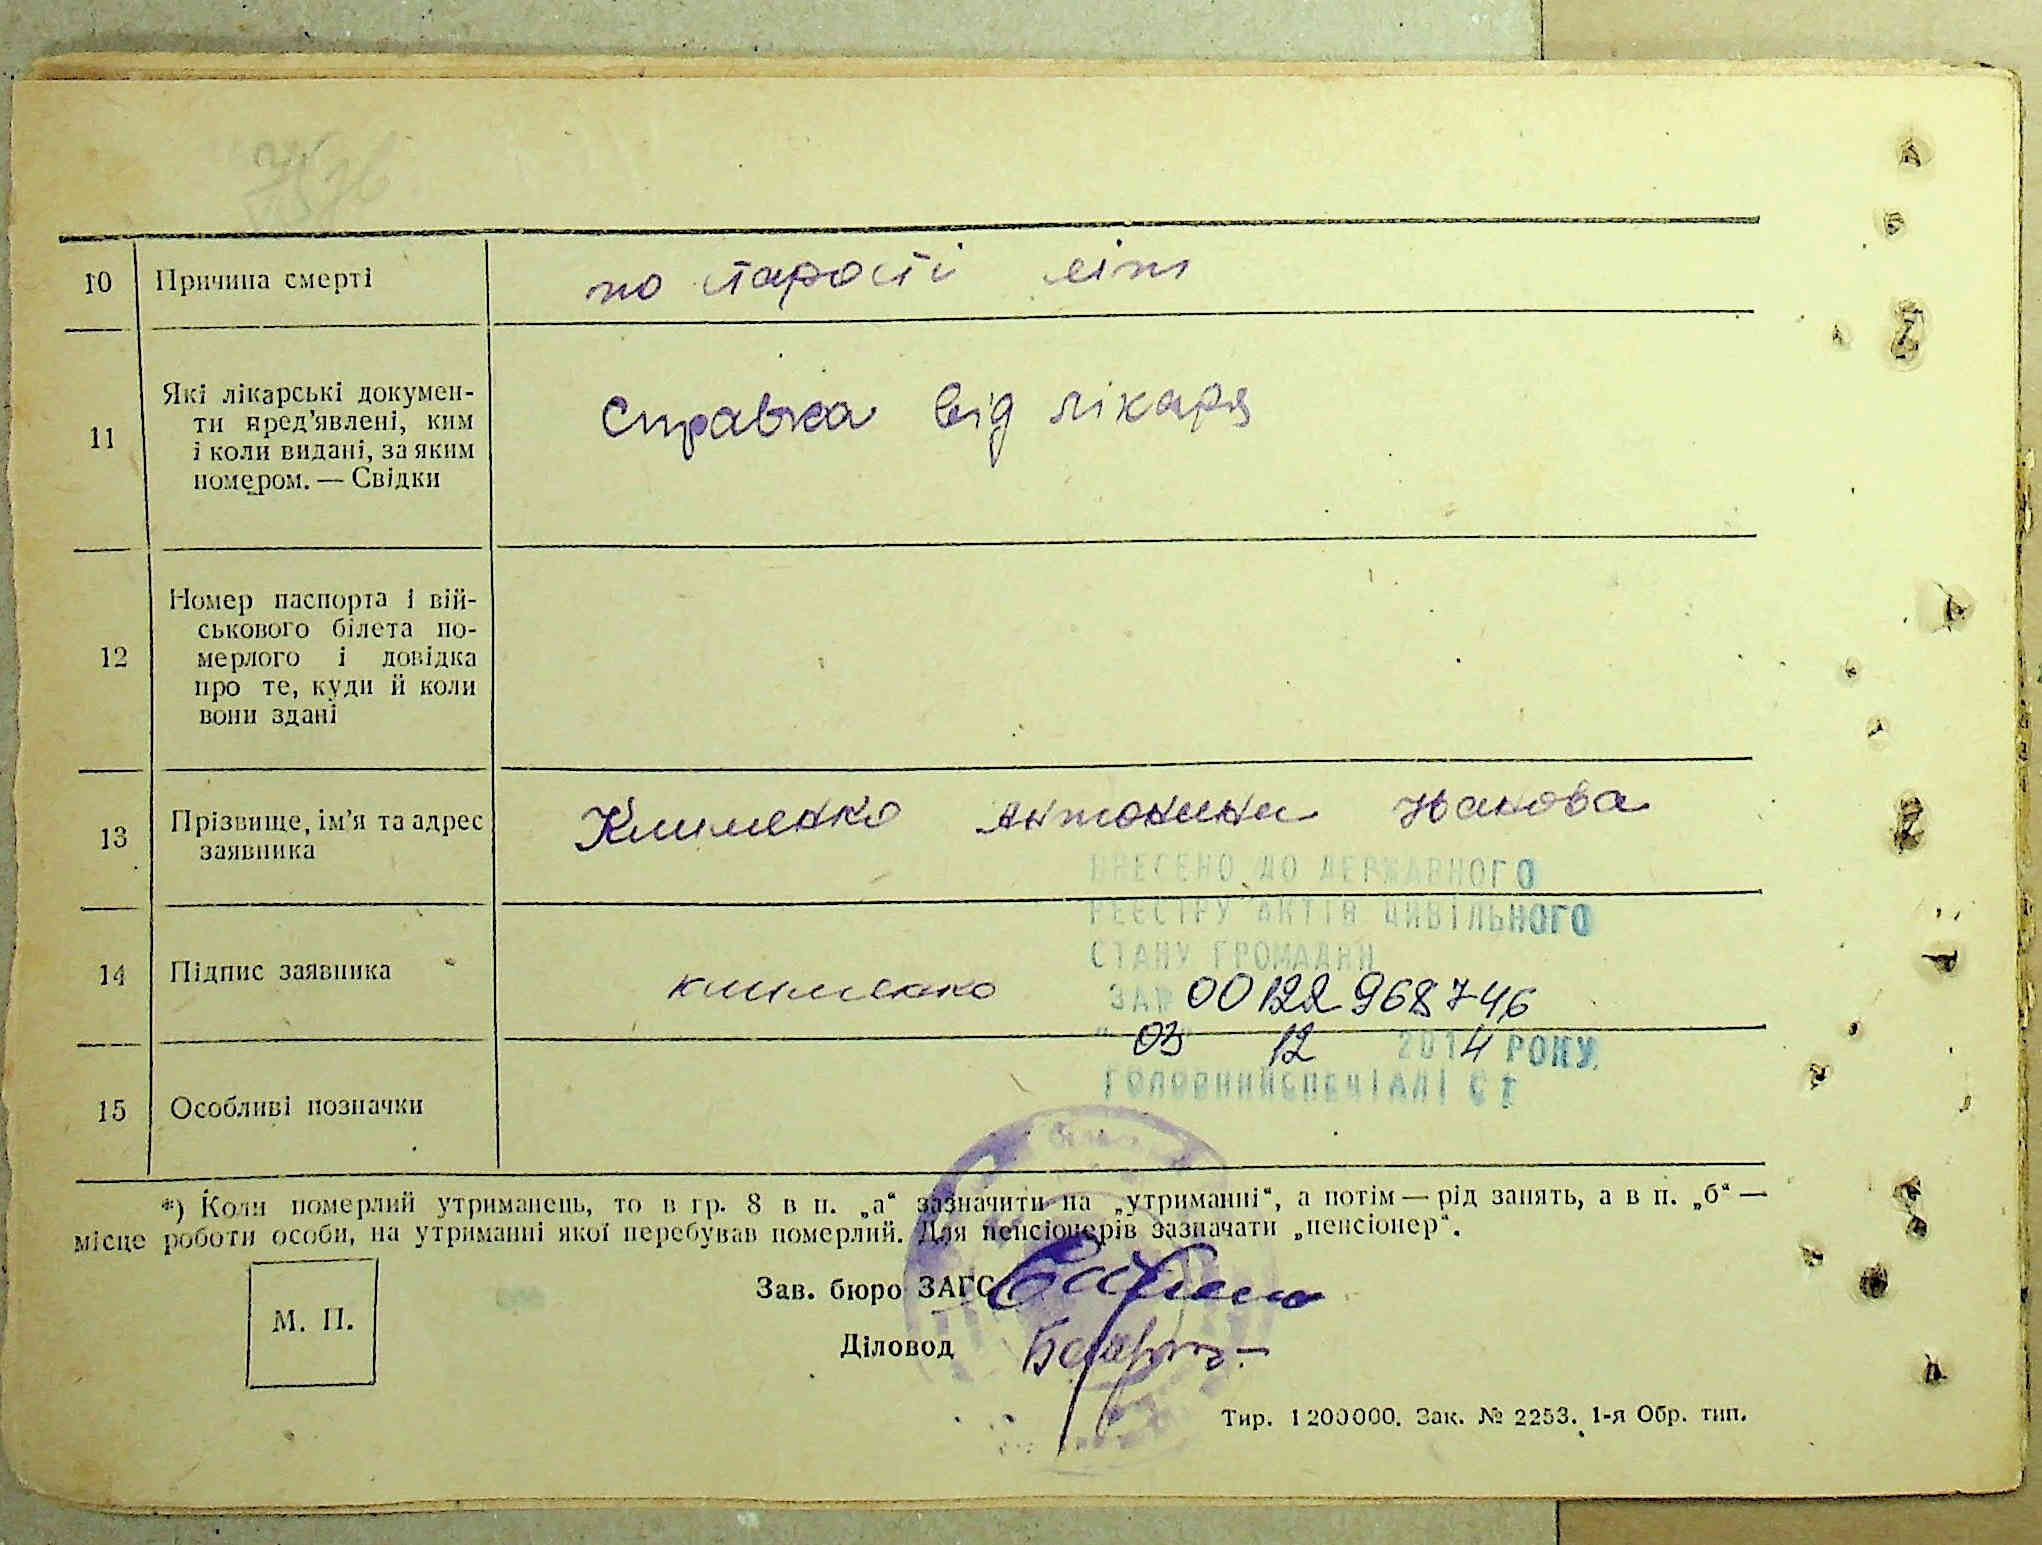 10 Причина смерті по старості літ
11 Які лікарські докумен-
ти пред’явлені, ким
і коли видані, за яким
номером. — Свідки
Справка від лікаря
12 Номер паспорта і вій-
ськового білета по-
мерлого і довідка
про те, куди й коли
вони здані
13 Прізвище, ім’я та адрес
заявника
Клименко Антонини
ВНЕСЕНО ДО ДЕРЖАВНОГО
РЕЄСТРУ АКТІВ ЦИВІЛЬНОГО
СТАНУ ГРОМАДЯН
14 Підпис заявника клименко
ЗА № 00122968746
"03" 12 2014 РОКУ
ГОЛОВНИЙ СПЕЦІАЛІСТ
15 Особливі позначки
*) Коли померлий утриманець, то в гр. 8 в п. „а“ зазначити на „утриманні“, а потім — рід занять, а в п. „б“ —
місце роботи особи, на утриманні якої перебував померлий. Для пенсіонерів зазначати „пенсіонер“.
М. П.
Зав. бюро ЗАГС
Діловод
Тир. 1200000. Зак. № 2253. 1-я Обр. тип.